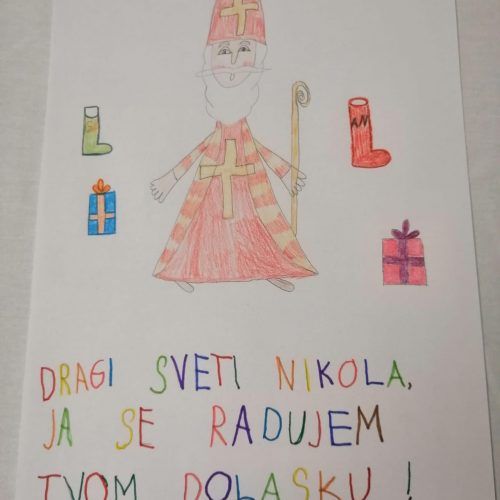 DRAGI SVETI NIKOLA,
JA SE RADUJEM
TVOM DOLASKU!